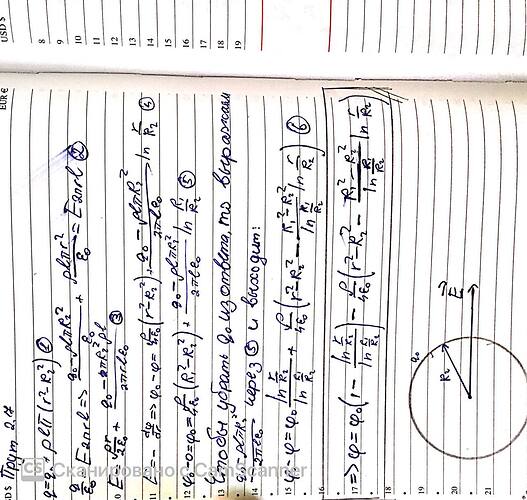 Прут 2.7
q = q₀ + ρlπ(r² - R₂²) ①
q/ε₀ = E2πrl => (q₀ - ρlπR₂²)/ε₀ + ρlπr²/ε₀ = E2πrl ②
E = ρr/2ε₀ + (q₀ - πR₂²ρl)/2πrlε₀ ③
E = -dφ/dr => φ₀ - φ = ρ/4ε₀ (r² - R₂²) + (q₀ - ρlπR₂²)/2πlε₀ ln r/R₂ ④
φ₀ - 0 = φ₀ = ρ/4ε₀ (R₁² - R₂²) + (q₀ - ρlπR₂²)/2πlε₀ ln R₁/R₂ ⑤
Чтобы убрать q₀ из ответа, то выражаем
(q₀ - ρlπR₂²)/2πlε₀ через ⑤ и выходит:
φ₀ - φ = φ₀ (ln r/R₂)/(ln R₁/R₂) + ρ/4ε₀ (r² - R₂² - (R₁² - R₂²)/(ln R₁/R₂) ln r/R₂) ⑥
=> φ = φ₀ (1 - (ln r/R₂)/(ln R₁/R₂)) - ρ/4ε₀ (r² - R₂² - (R₁² - R₂²)/(ln R₁/R₂) ln r/R₂)
q₀
R₂
E
USD $
8
9
10
11
12
13
14
15
16
17
18
19
EUR €
USD $
10
11
12
13
14
15
16
17
18
19
20
21
CS Сканировано с CamScanner